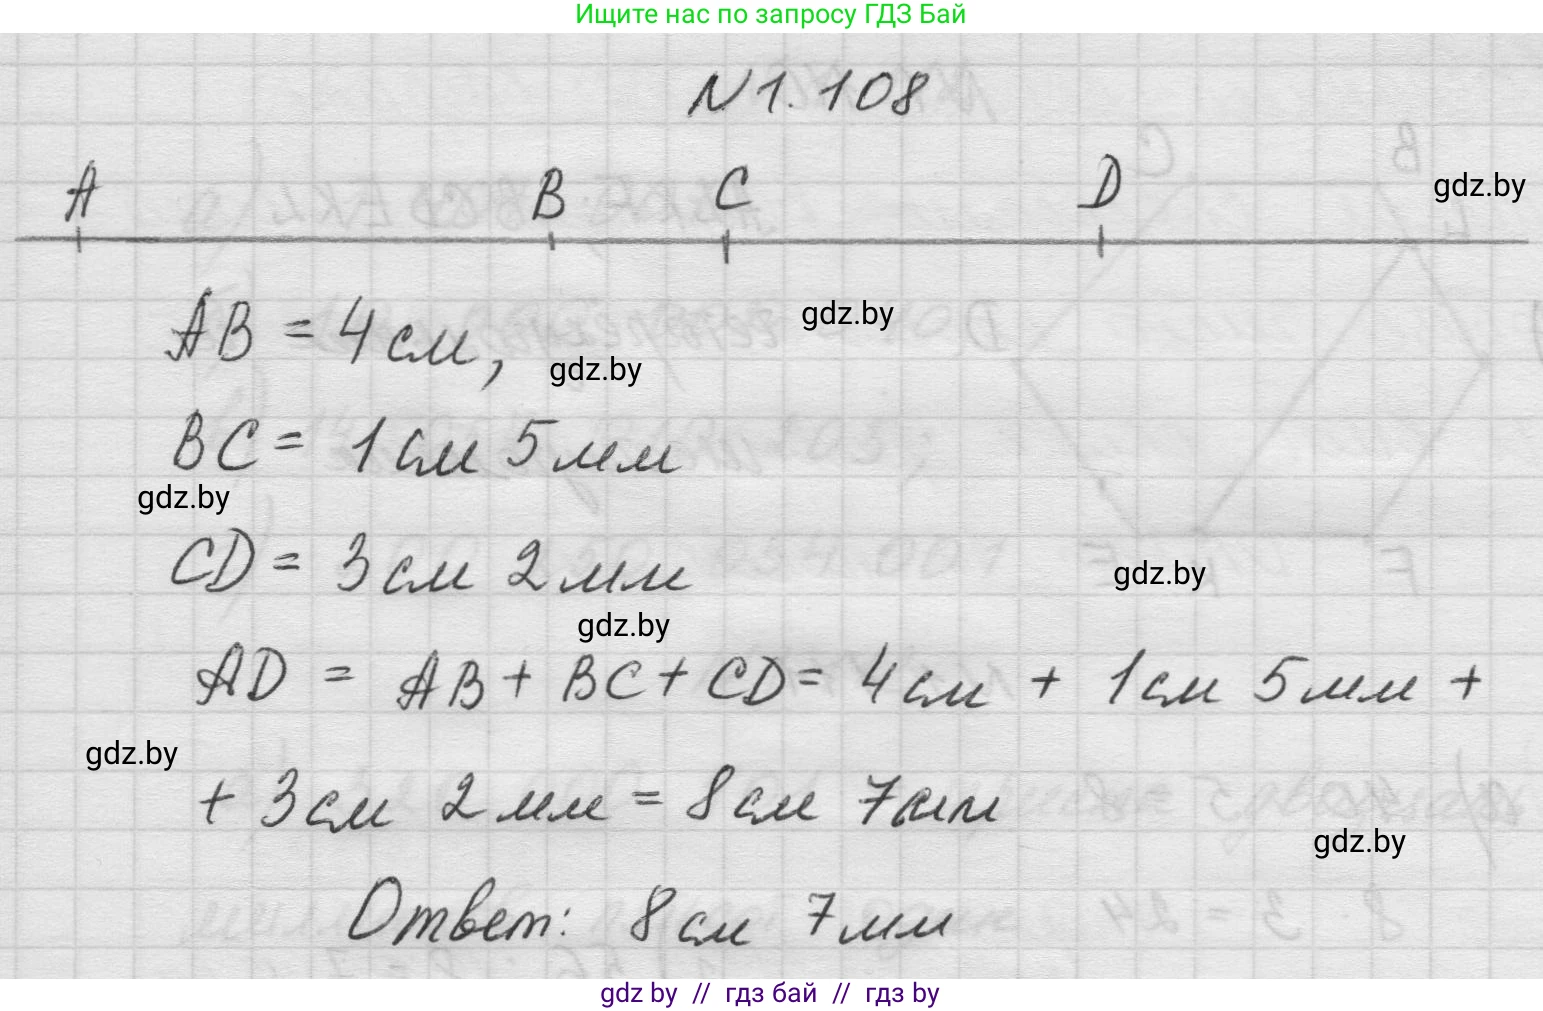 Ищите нас по запросу ГДЗ Бай
N1.108
A B C D
gdz.by
AB = 4 см,
gdz.by
gdz.by
BC = 1 см 5 мм
gdz.by
CD = 3 см 2 мм
gdz.by
gdz.by
AD = AB + BC + CD = 4 см + 1 см 5 мм +
gdz.by
+ 3 см 2 мм = 8 см 7 мм
gdz.by
Ответ: 8 см 7 мм
gdz by // гдз бай // гдз by